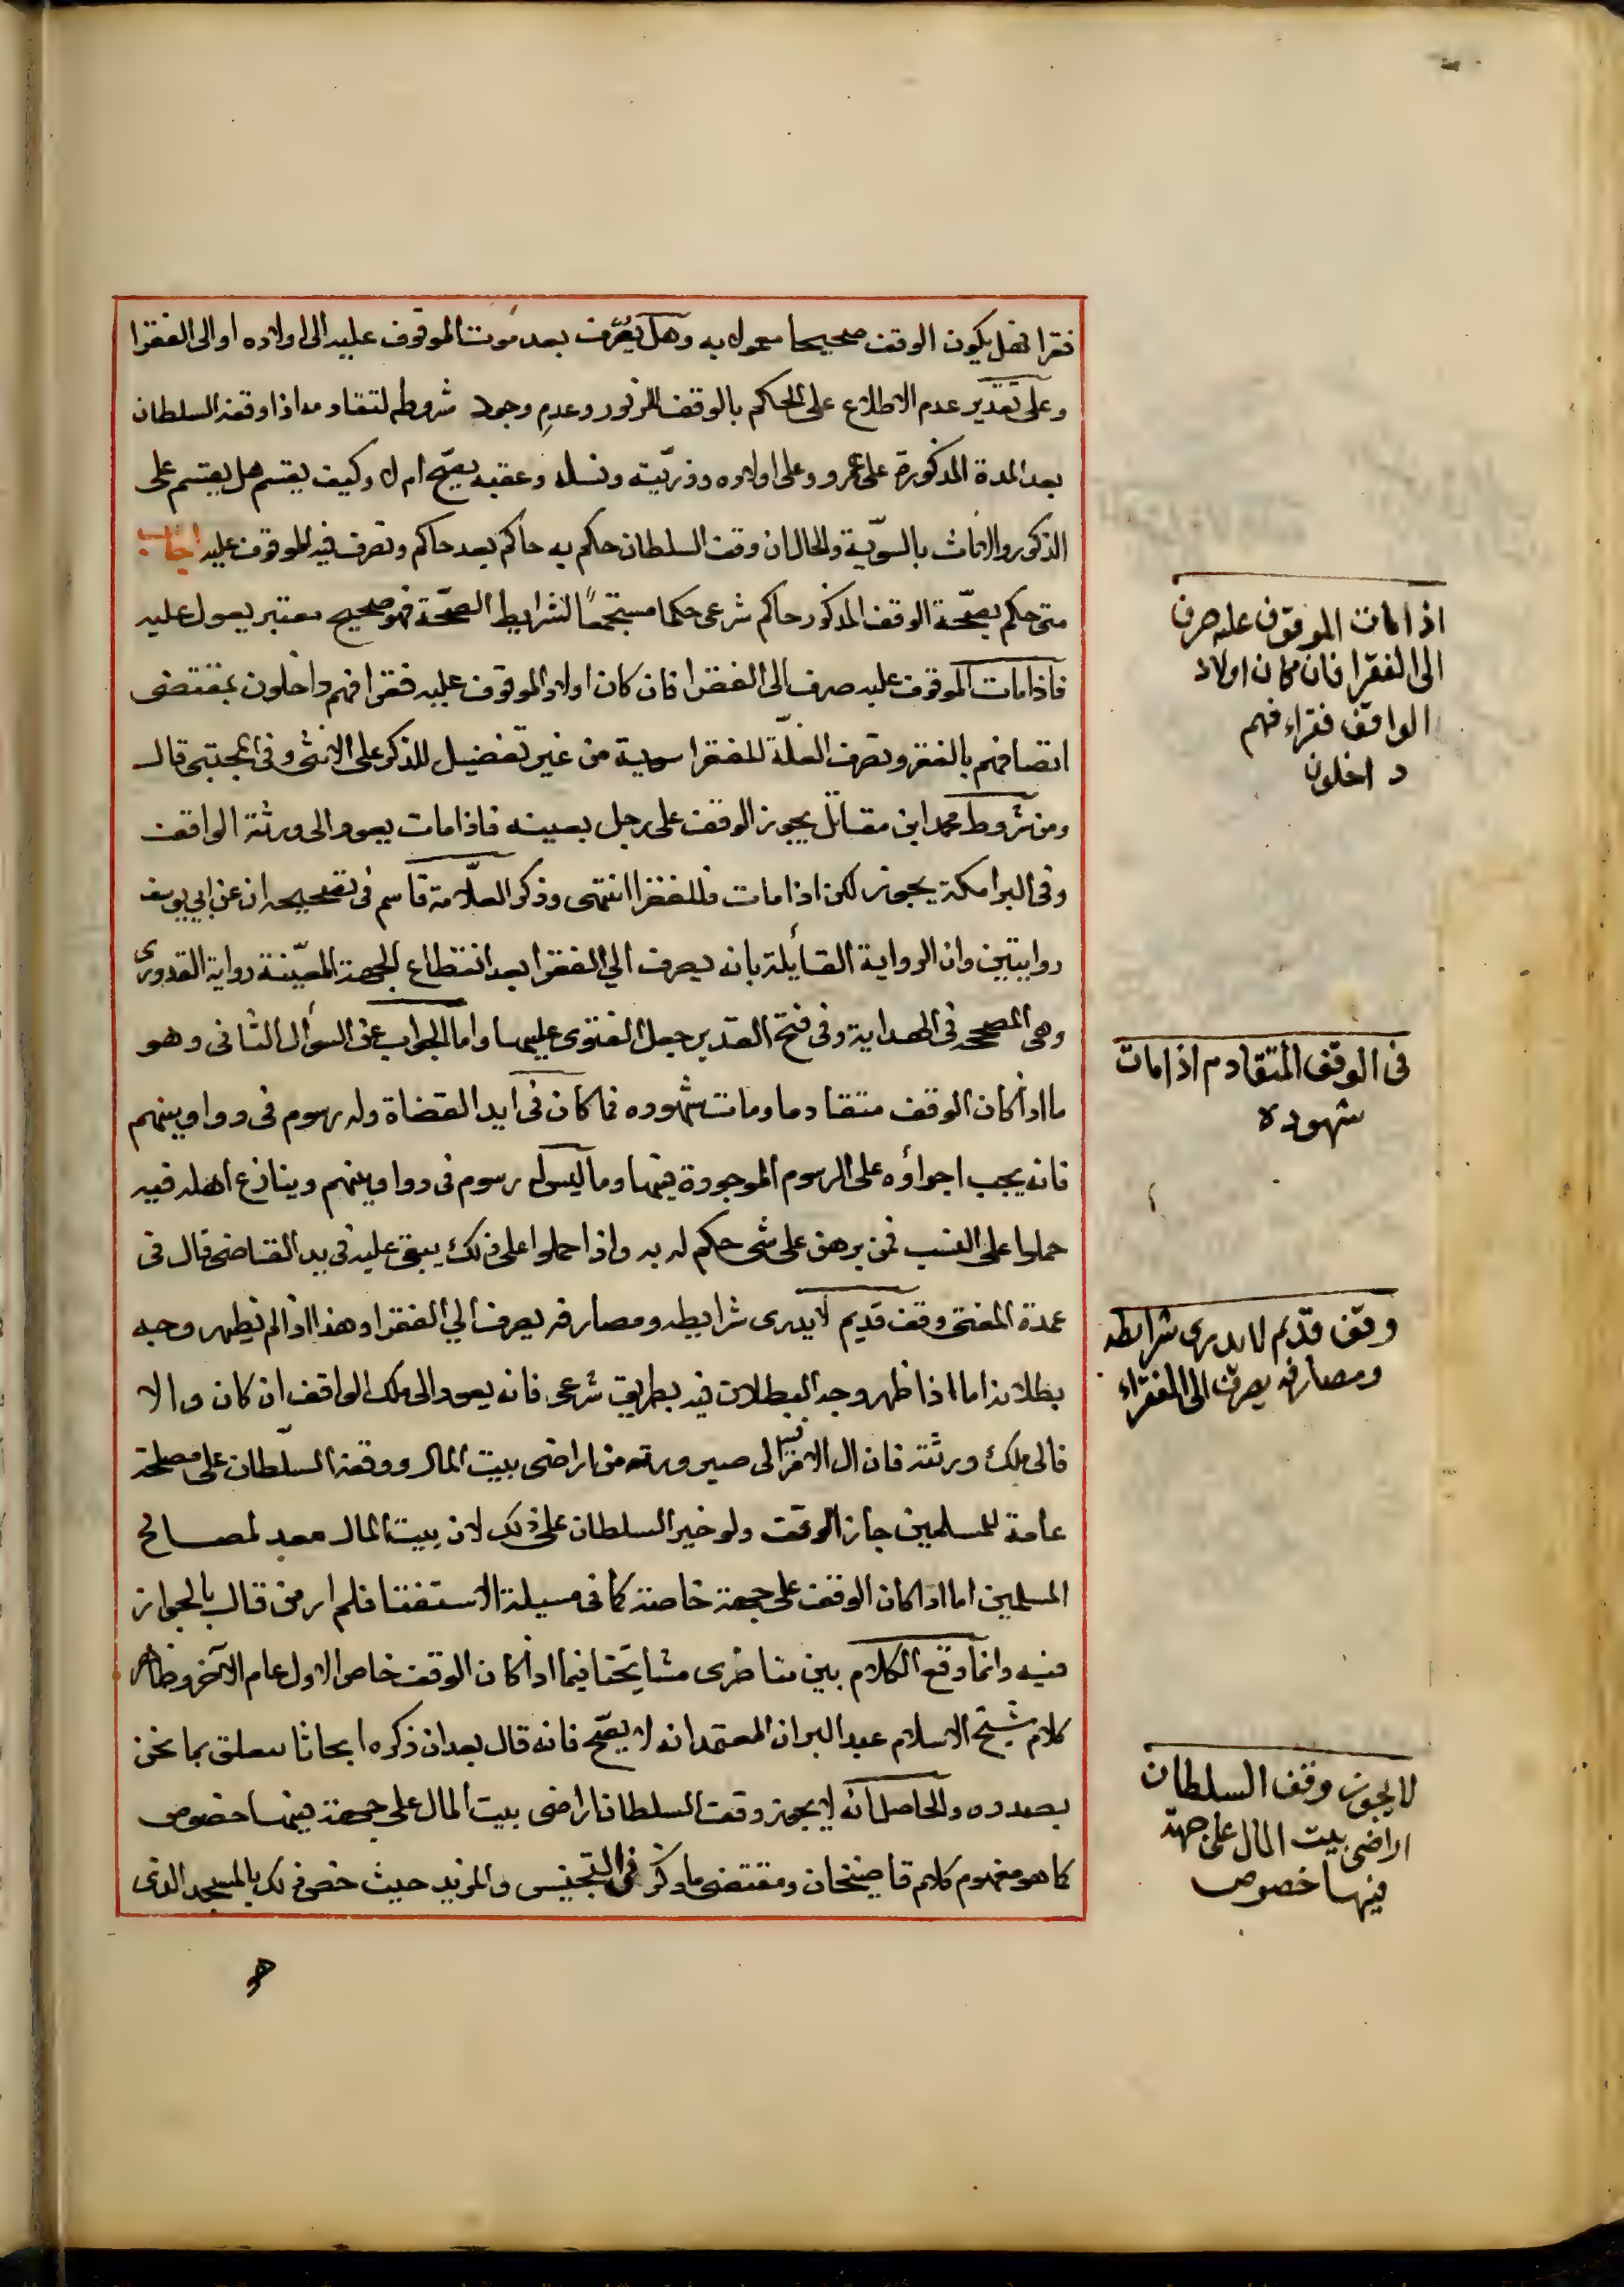 فقرا فهل يكون الوقف صحيحا معمولا به وهل يصرف بعد موت الموقوف عليه الى اولاده او الى الفقرا
وعلى تقدير عدم الاطلاع على الحكم بالوقف المزبور وعدم وجود شروطه لتقادمه اذا وقفه السلطان
بعد المدة المذكورة على عمرو وعلى اولاده وذريّته ونسله وعقبه يصح ام لا وكيف يقسم هل يقسم على
الذكور والاناث بالسويّة والحال ان وقف السلطان حكم به حاكم بعد حاكم وتصرف فيه الموقوف عليه اجاب
متى حكم بصحّة الوقف المذكور حاكم شرعى حكما مستجمعاً لشرايط الصحّة فهو صحيح معتبر يعول عليه
فاذا مات الموقوف عليه صرف الى الفقرا فان كان اولاد الموقوف عليه فقرا فهم داخلون بمقتضى
اتصافهم بالفقر وتصرف الغلّة للفقرا سوية من غير تفضيل للذكر على الانثى وفى المجتبى قال
ومن شروط محمد ابن مقاتل يجوز الوقف على رجل بعينه فاذا مات يعود الى ورثة الواقف
وفى البرامكة يجوز لكن اذا مات فللفقرا انتهى وذكر العلّامة قاسم فى تصحيحه ان عن ابي يوسف
روايتين وان الرواية القائلة بانه يصرف الي الفقرا بعد انقطاع الجهة المعيّنة رواية القدورى
وهى المصححه فى الهداية وفى فتح القدير جعل الفتوى عليها واما الجواب عن السؤال الثانى وهو
ما اذا كان الوقف متقادما وماتت شهوده فما كان فى ايد القضاة وله رسوم فى دواوينهم
فانه يجب اجراؤه على الرسوم الموجودة فيها وما ليس له رسوم فى دواوينهم وينازع اهله فيه
حملوا على فمن برهن على شى حكم له به واذا حملوا على ذلك يبقى عليه فى يد القاضى قال فى
عمدة المفتى وقف قديم لا يدرى شرايطه ومصارفه يصرف الي الفقرا وهذا اذا لم يظهر وجه
بطلانه اما اذا ظهر وجه البطلان فيه بطريق شرعى فانه يعود الى ملك الواقف ان كان والا
فالى ملك ورثته فان ال الامر فيه الى صيرورته من اراضى بيت المال ووقفه السلّطان على مصلحة
عامة للمسلمين جاز الوقف ولو خير السلطان على ذلك لان بيت المال معد لمصالح
المسلمين اما اذا كان الوقف على جهة خاصة كما فى مسيلة الاستفتا فلم ار من قال بالجواز
فيه وانما وقع الكلام بين متاخرى مشايخنا فيما اذا كان الوقف خاص الاول عام الآخر وظاهر
كلام شيخ الاسلام عبد البر ان المعتمد انه لا يصحّ فانه قال بعد ان ذكره ابحاثا تتعلق بما نحن
بصدده والحاصل انه لا يجوز وقف السلطان اراضى بيت المال على جهة فيها خصوص
كما هو مفهوم كلام قاضيخان ومقتضى ما ذكر فى التجنيس والمزيد حيث خص ذلك بالمسجد الذى
اذا مات الموقوف عليه صرف
الى الفقرا فان كان اولاد
الواقف فقراء فهم
داخلون
فى الوقف المتقادم اذا مات
شهوده
وقف قديم لا يدرى شرايطه
ومصارفه يصرف الى الفقراء
لا يجوز وقف السلطان
اراضى بيت المال على جهة
فيها خصوص
هو